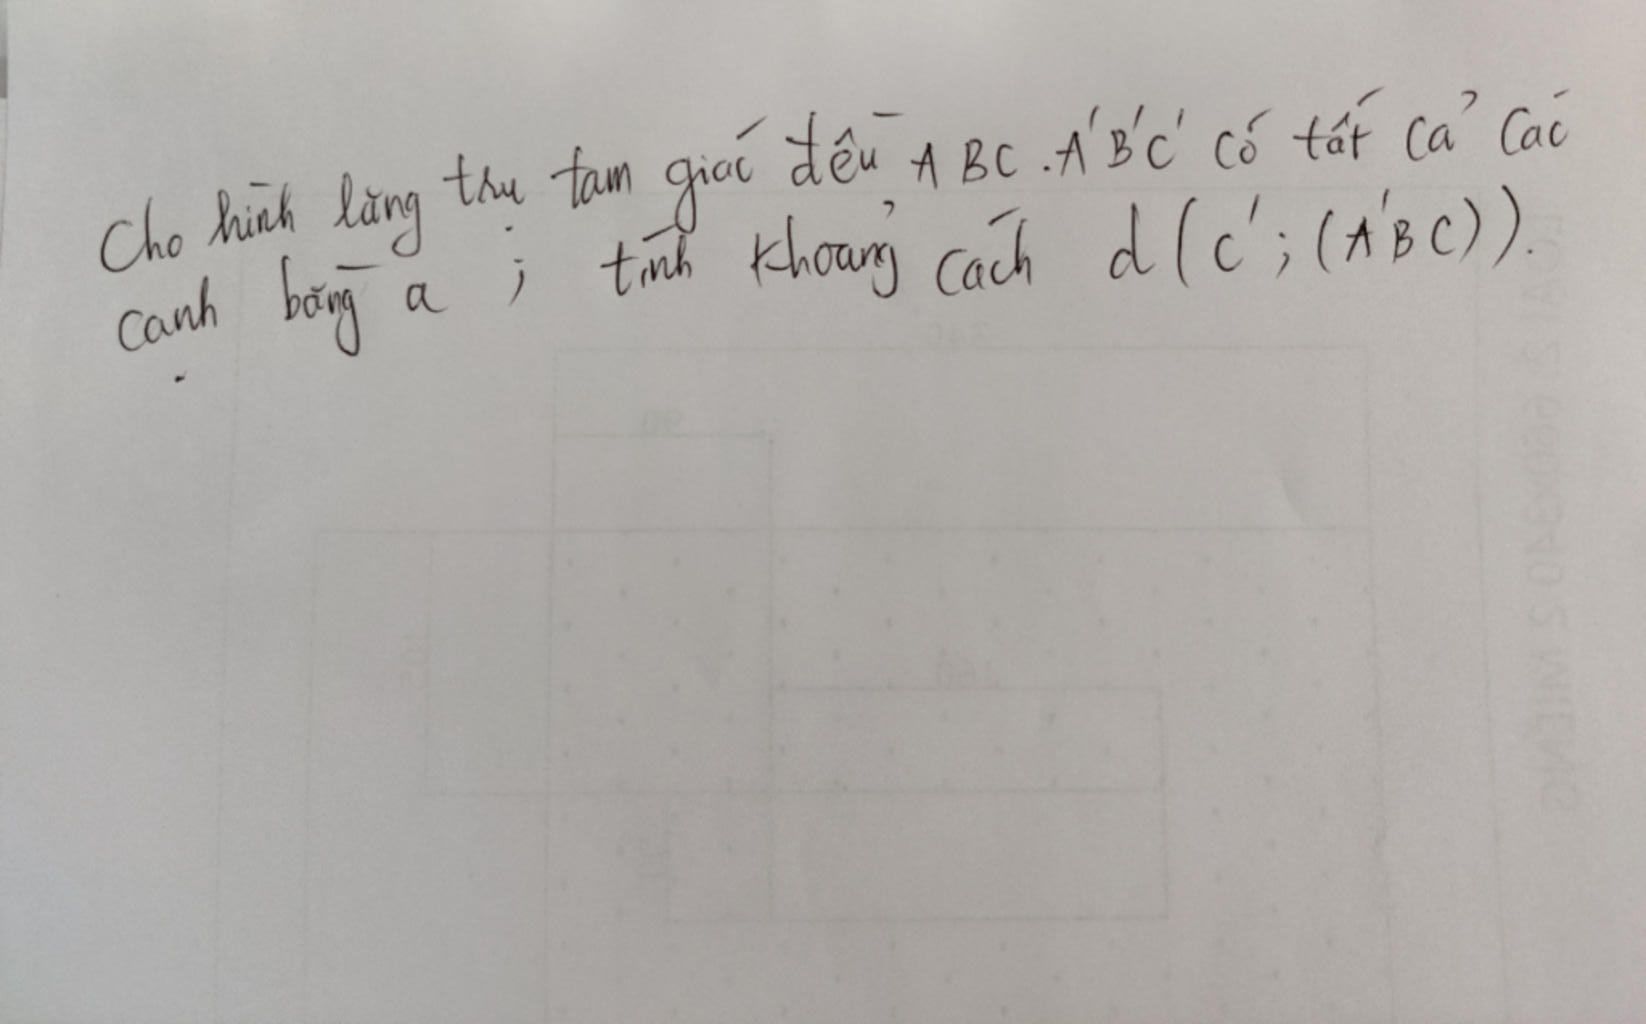 Cho hình lăng trụ tam giác đều ABC.A'B'C' có tất cả các
cạnh bằng a ; tính khoảng cách d(C';(A'BC)).